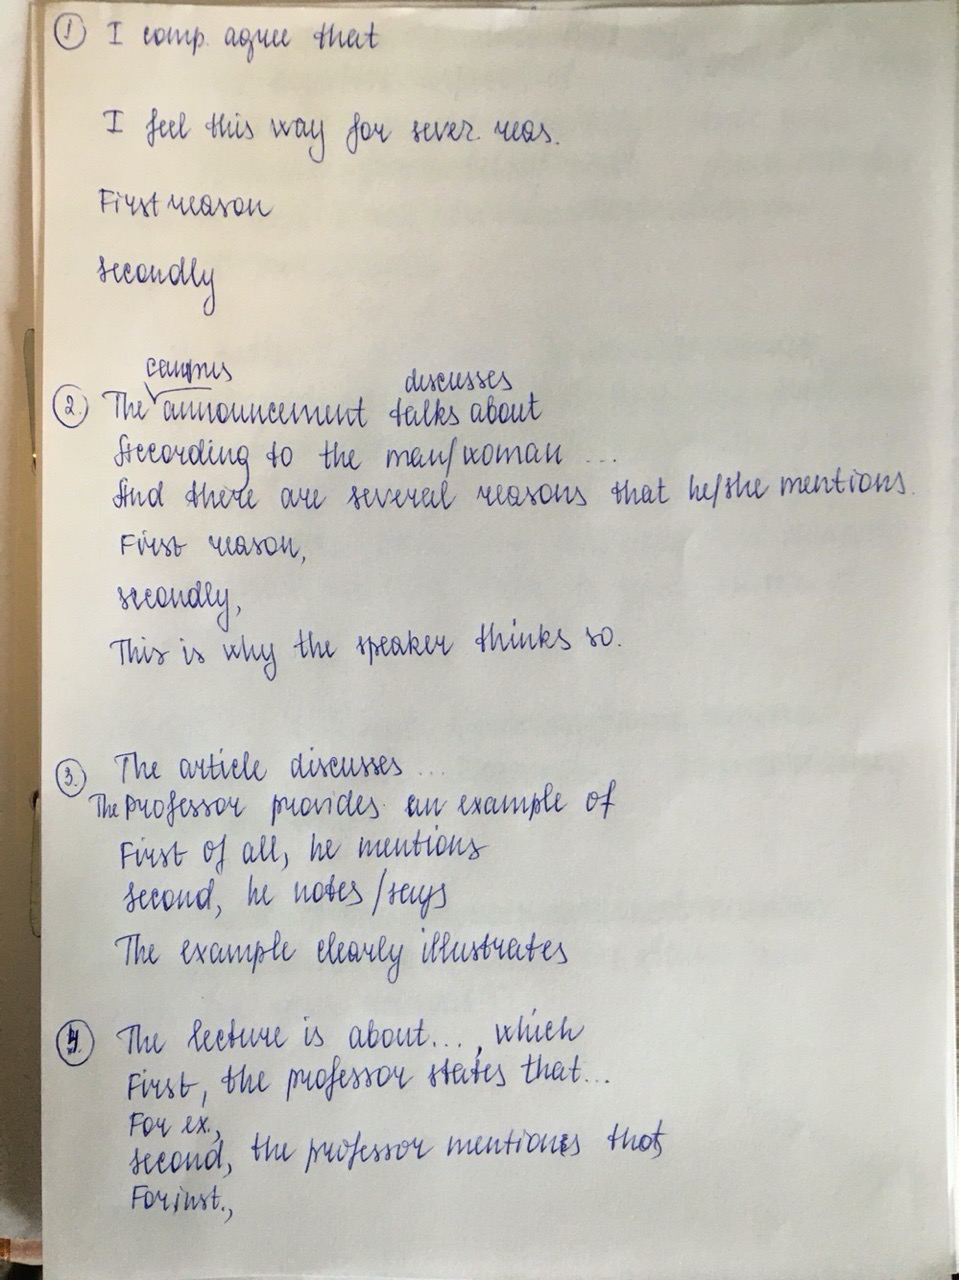 ① I comp. agree that
I feel this way for sever. reas.
First reason
secondly
campus discusses
②. The announcement talks about
According to the man/woman ...
And there are several reasons that he/she mentions.
First reason,
secondly,
This is why the speaker thinks so.
③. The article discusses ...
The professor provides an example of
First of all, he mentions
Second, he notes /says
The example clearly illustrates
④. The lecture is about..., which
First, the professor states that...
For ex.,
Second, the professor mentions that,
For inst.,